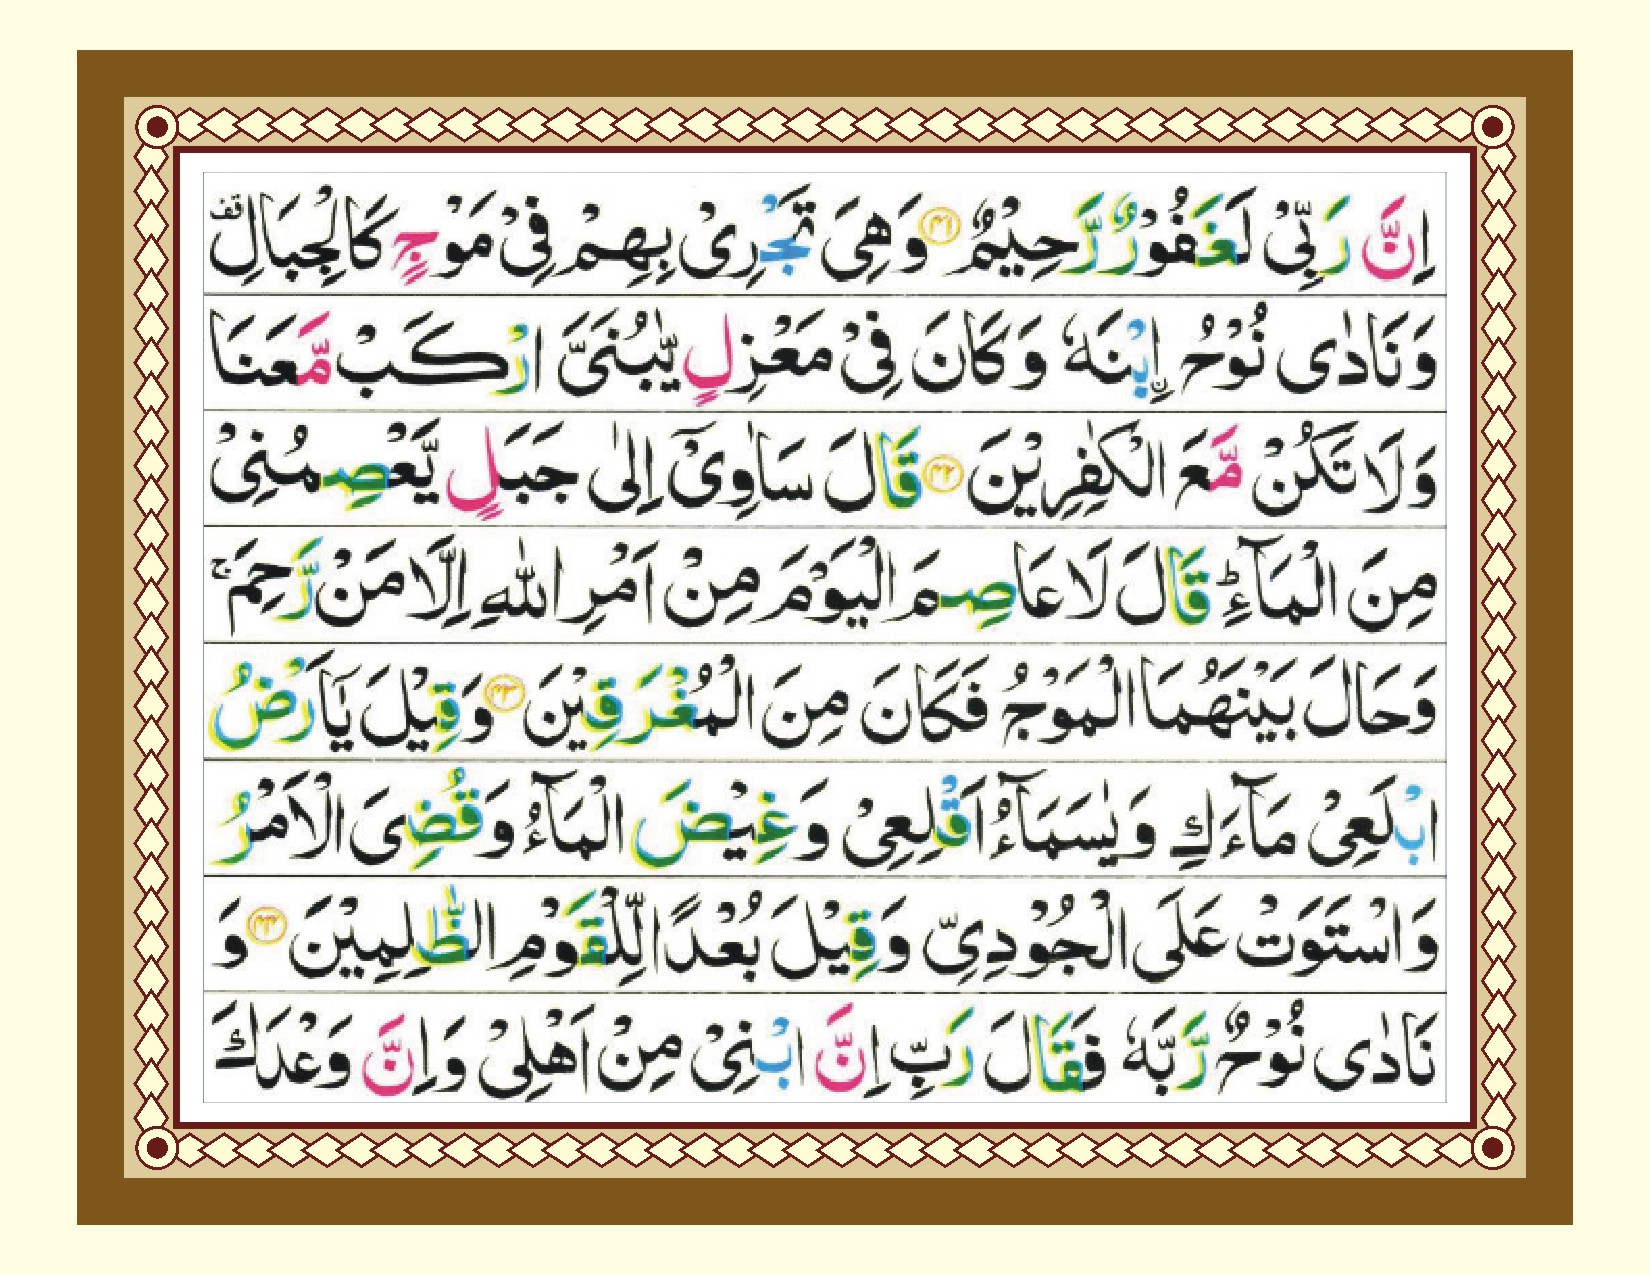 اِنَّ رَبِّیْ لَغَفُوْرٌ رَّحِیْمٌ ﴿۴۱﴾ وَهِیَ تَجْرِیْ بِهِمْ فِیْ مَوْجٍ كَالْجِبَالِ ۫
وَنَادٰی نُوْحُ ِ۟ابْنَهٗ وَكَانَ فِیْ مَعْزِلٍ یّٰبُنَیَّ ارْكَبْ مَّعَنَا
وَلَا تَكُنْ مَّعَ الْكٰفِرِیْنَ ﴿۴۲﴾ قَالَ سَاٰوِیْۤ اِلٰی جَبَلٍ یَّعْصِمُنِیْ
مِنَ الْمَآءِ ؕ قَالَ لَا عَاصِمَ الْیَوْمَ مِنْ اَمْرِ اللّٰهِ اِلَّا مَنْ رَّحِمَ ۚ
وَحَالَ بَیْنَهُمَا الْمَوْجُ فَكَانَ مِنَ الْمُغْرَقِیْنَ ﴿۴۳﴾ وَقِیْلَ یٰۤاَرْضُ
ابْلَعِیْ مَآءَكِ وَیٰسَمَآءُ اَقْلِعِیْ وَغِیْضَ الْمَآءُ وَقُضِیَ الْاَمْرُ
وَاسْتَوَتْ عَلَی الْجُوْدِیِّ وَقِیْلَ بُعْدًا لِّلْقَوْمِ الظّٰلِمِیْنَ ﴿۴۴﴾ وَ
نَادٰی نُوْحٌ رَّبَّهٗ فَقَالَ رَبِّ اِنَّ ابْنِیْ مِنْ اَهْلِیْ وَاِنَّ وَعْدَكَ